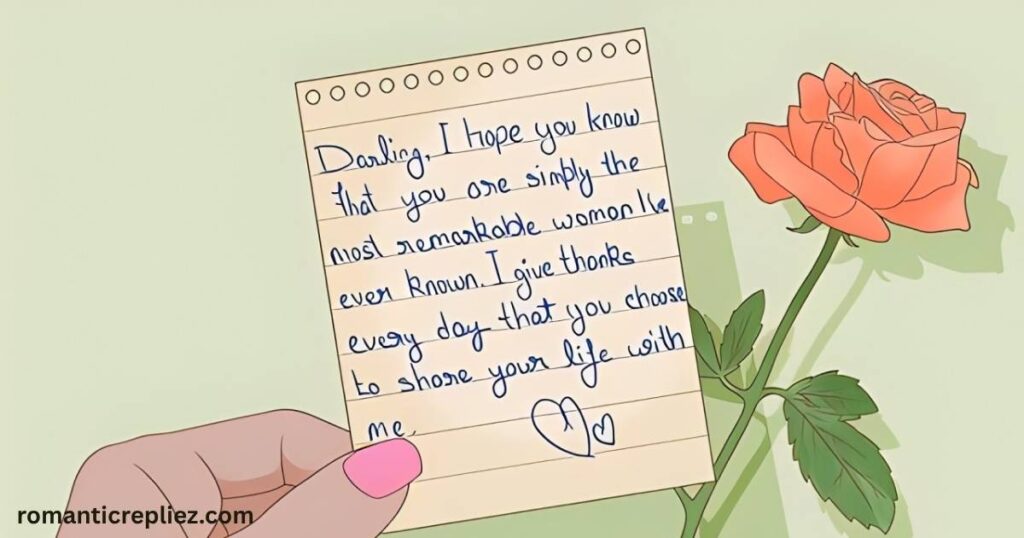 Darling, I hope you know
that you are simply the
most remarkable woman I've
ever known. I give thanks
every day that you choose
to share your life with
me.
romanticrepliez.com